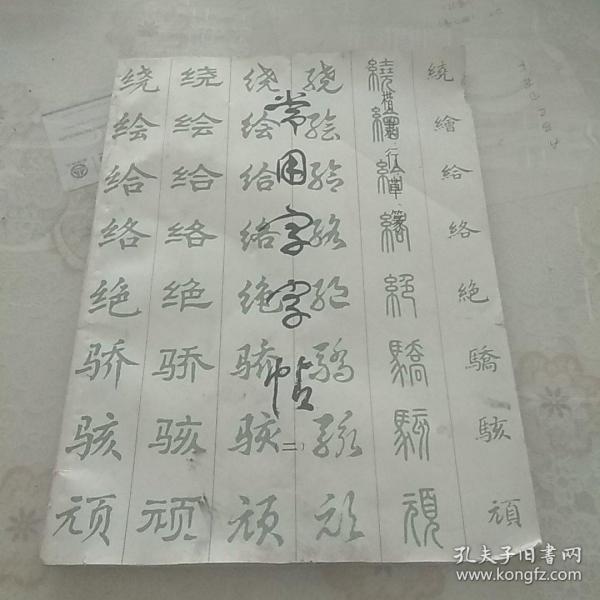 常用字字帖
(二)
楷、隶、行、草、篆
绕 绕 绕 绕 繞 繞
绘 绘 绘 绘 繪 繪
给 给 给 给 給 給
络 络 络 络 絡 絡
绝 绝 绝 绝 絕 絶
骄 骄 骄 骄 驕 驕
骇 骇 骇 骇 駭 駭
顽 顽 顽 顽 頑 頑
孔夫子旧书网
www.kongfz.com